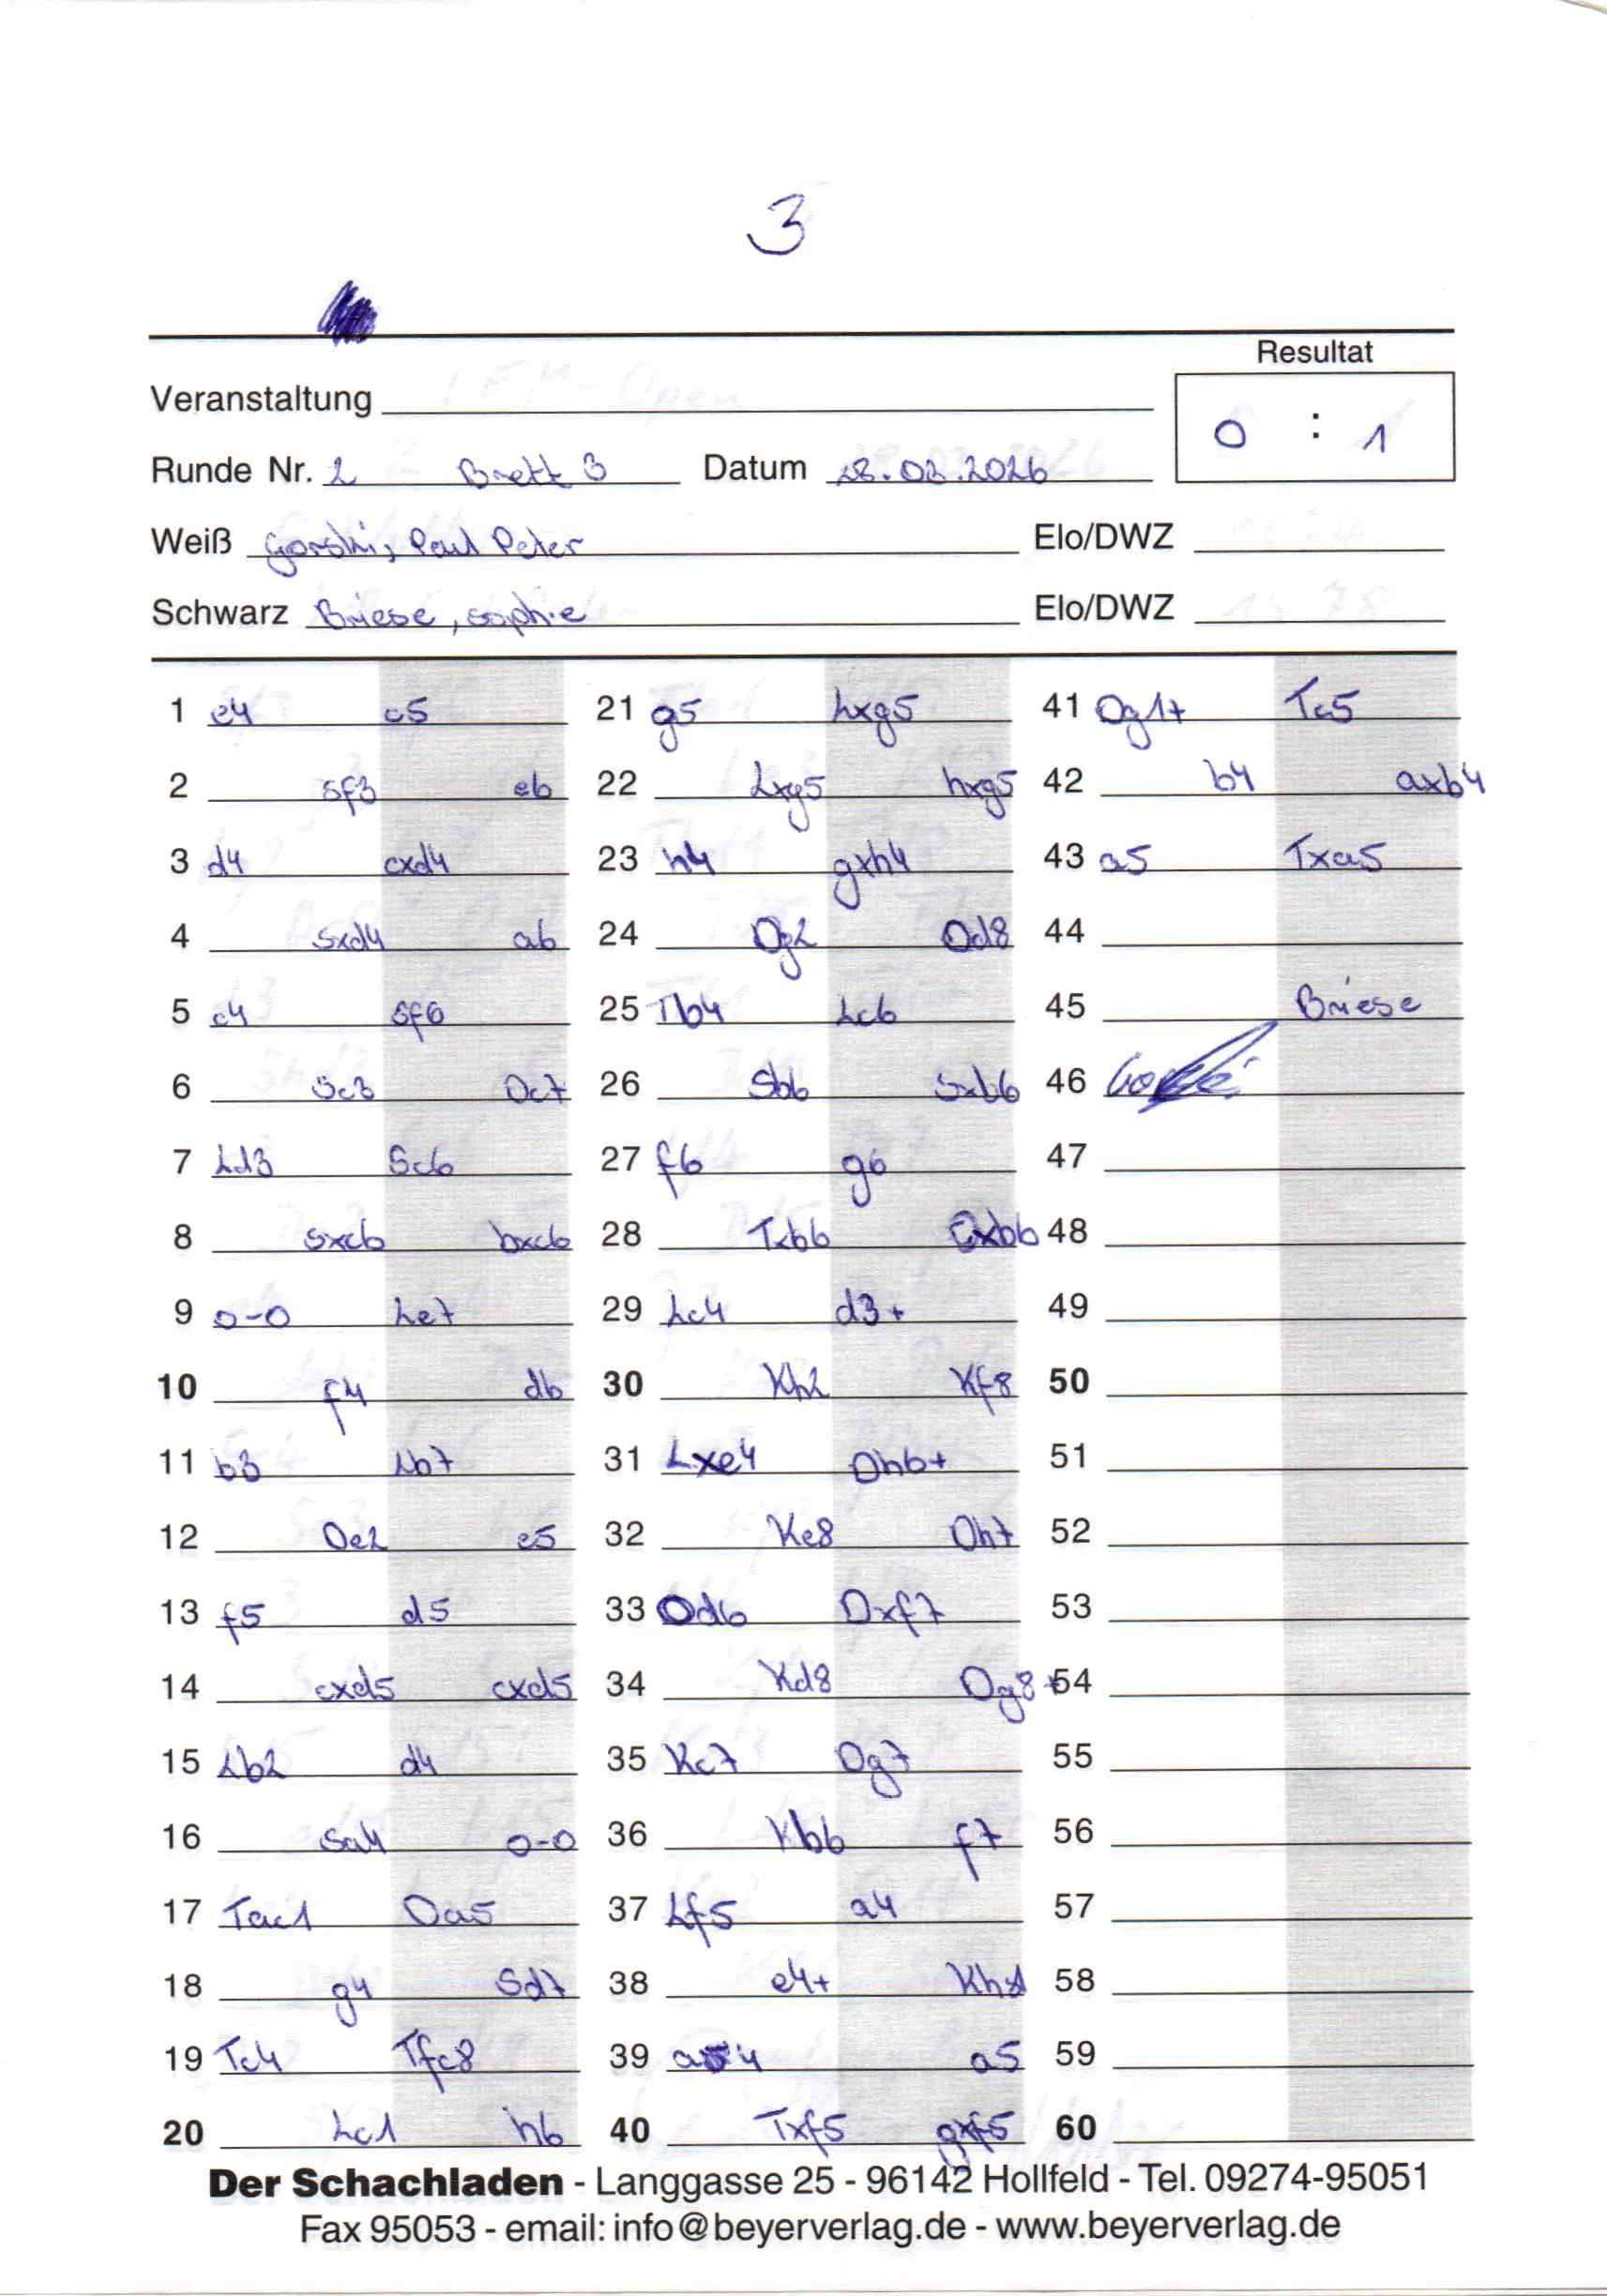 3
Resultat
Veranstaltung
0 : 1
Runde Nr. 2 Brett 3 Datum 28.03.2026
Weiß Gorski, Paul Peter Elo/DWZ
Schwarz Briese, Sophie Elo/DWZ
1 e4 c5 21 g5 Lxg5 41 Dg1+ Tc5
2 Sf3 e6 22 Lxg5 hxg5 42 b4 axb4
3 d4 cxd4 23 h4 gxh4 43 a5 Txa5
4 Sxd4 a6 24 Dg2 Dd8 44
5 c4 Sf6 25 Tb4 Lc6 45 Briese
6 Sc3 Dc7 26 Sb6 Sxb6 46
7 Ld3 Sc6 27 f6 g6 47
8 Sxc6 bxc6 28 Txb6 Dxb6 48
9 0-0 Le7 29 Lc4 d3+ 49
10 f4 d6 30 Kh2 Kf8 50
11 b3 Lb7 31 Lxe4 Dh6+ 51
12 De2 e5 32 Ke8 Dh7 52
13 f5 d5 33 Dd6 Dxf7 53
14 cxd5 cxd5 34 Kd8 Dg8+ 54
15 Lb2 d4 35 Kc7 Dg7 55
16 Sa4 0-0 36 Kb6 f7 56
17 Tac1 Da5 37 Lf5 a4 57
18 g4 Sd7 38 e4+ 58
19 Tc4 Tfc8 39 a4 a5 59
20 Lc1 h6 40 Txf5 gxf5 60
Der Schachladen - Langgasse 25 - 96142 Hollfeld - Tel. 09274-95051
Fax 95053 - email: info@beyerverlag.de - www.beyerverlag.de